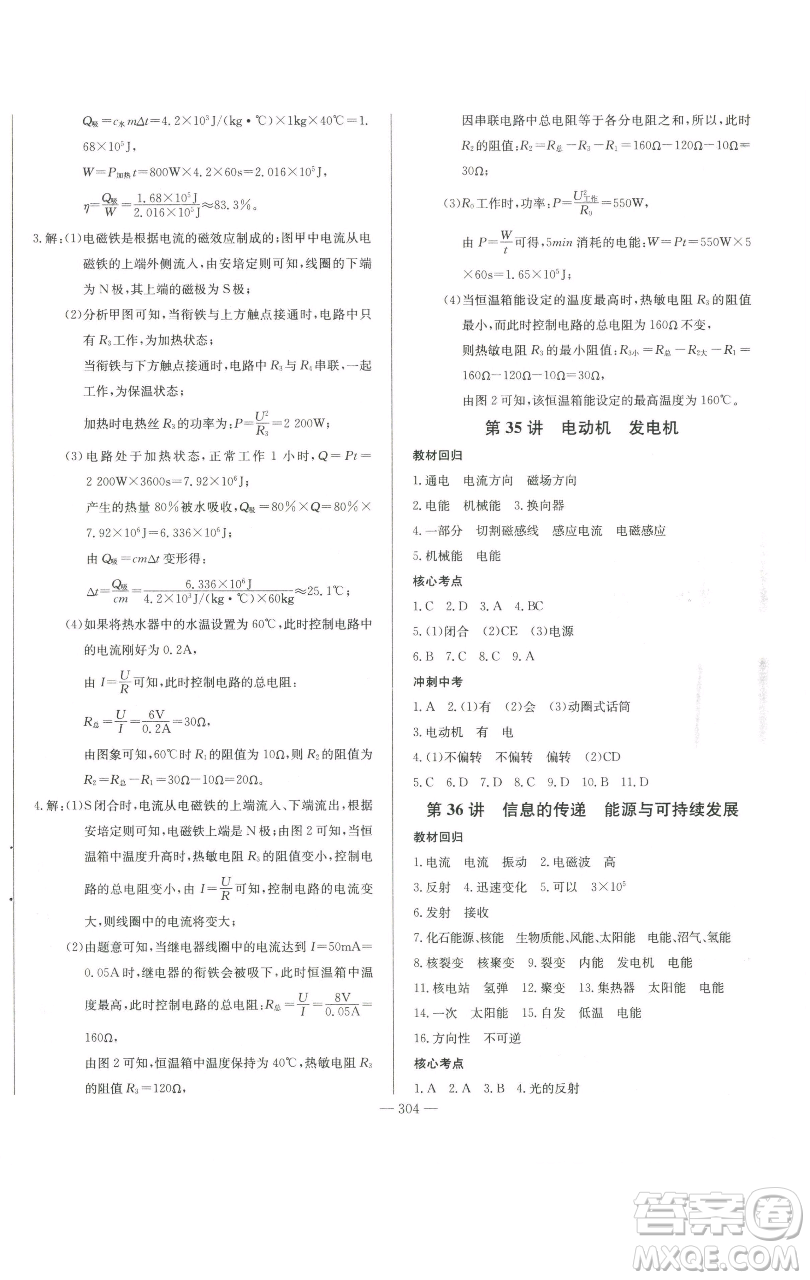 Q吸=c水mΔt=4.2×10³J/(kg·℃)×1kg×40℃=1.
68×10⁵J,
W=P加热t=800W×4.2×60s=2.016×10⁵J,
η=Q吸/W=1.68×10⁵J/2.016×10⁵J≈83.3%。
3.解:(1)电磁铁是根据电流的磁效应制成的;图甲中电流从电
磁铁的上端外侧流入,由安培定则可知,线圈的下端
为N极,其上端的磁极为S极;
(2)分析甲图可知,当衔铁与上方触点接通时,电路中只
有R3工作,为加热状态;
当衔铁与下方触点接通时,电路中R3与R4串联,一起
工作,为保温状态;
加热时电热丝R3的功率为:P=U²/R3=2 200W;
(3)电路处于加热状态,正常工作1小时,Q=Pt=
2 200W×3600s=7.92×10⁶J;
产生的热量80%被水吸收,Q吸=80%×Q=80%×
7.92×10⁶J=6.336×10⁶J;
由Q吸=cmΔt变形得:
Δt=Q吸/cm=6.336×10⁶J/4.2×10³J/(kg·℃)×60kg≈25.1℃;
(4)如果将热水器中的水温设置为60℃,此时控制电路中
的电流刚好为0.2A,
由I=U/R可知,此时控制电路的总电阻:
R总=U/I=6V/0.2A=30Ω,
由图象可知,60℃时R1的阻值为10Ω,则R2的阻值为
R2=R总-R1=30Ω-10Ω=20Ω。
4.解:(1)S闭合时,电流从电磁铁的上端流入、下端流出,根据
安培定则可知,电磁铁上端是N极;由图2可知,当恒
温箱中温度升高时,热敏电阻R3的阻值变小,控制电
路的总电阻变小,由I=U/R可知,控制电路的电流变
大,则线圈中的电流将变大;
(2)由题意可知,当继电器线圈中的电流达到I=50mA=
0.05A时,继电器的衔铁会被吸下,此时恒温箱中温
度最高,此时控制电路的总电阻:R总=U/I=8V/0.05A=
160Ω,
由图2可知,恒温箱中温度保持为40℃,热敏电阻R3
的阻值R3=120Ω,
因串联电路中总电阻等于各分电阻之和,所以,此时
R2的阻值:R2=R总-R3-R1=160Ω-120Ω-10Ω=
30Ω;
(3)R0工作时,功率:P=U²工作/R0=550W,
由P=W/t可得,5min消耗的电能:W=Pt=550W×5
×60s=1.65×10⁵J;
(4)当恒温箱能设定的温度最高时,热敏电阻R3的阻值
最小,而此时控制电路的总电阻为160Ω不变,
则热敏电阻R3的最小阻值:R3小=R总-R2大-R1=
160Ω-100Ω-10Ω=50Ω,
由图2可知,该恒温箱能设定的最高温度为160℃。
第35讲 电动机 发电机
教材回归
1.通电 电流方向 磁场方向
2.电能 机械能 3.换向器
4.一部分 切割磁感线 感应电流 电磁感应
5.机械能 电能
核心考点
1.C 2.D 3.A 4.BC
5.(1)闭合 (2)CE (3)电源
6.B 7.C 8.C 9.A
冲刺中考
1.A 2.(1)有 (2)会 (3)动圈式话筒
3.电动机 有 电
4.(1)不偏转 不偏转 偏转 (2)CD
5.C 6.D 7.C 8.C 9.D 10.D 11.D
第36讲 信息的传递 能源与可持续发展
教材回归
1.电流 电流 振动 2.电磁波 高
3.反射 4.迅速变化 5.可以 3×10⁵
6.发射 接收
7.化石能源、核能 生物质能、风能、太阳能 电能、沼气、氢能
8.核裂变 核聚变 9.裂变 内能 发电机 电能
11.核电站 氢弹 12.聚变 13.集热器 太阳能电池
14.一次 太阳能 15.自发 低温 电能
16.方向性 不可逆
核心考点
1.A 2.A 3.A 4.光的反射
— 304 —
答案卷
MXQE.COM